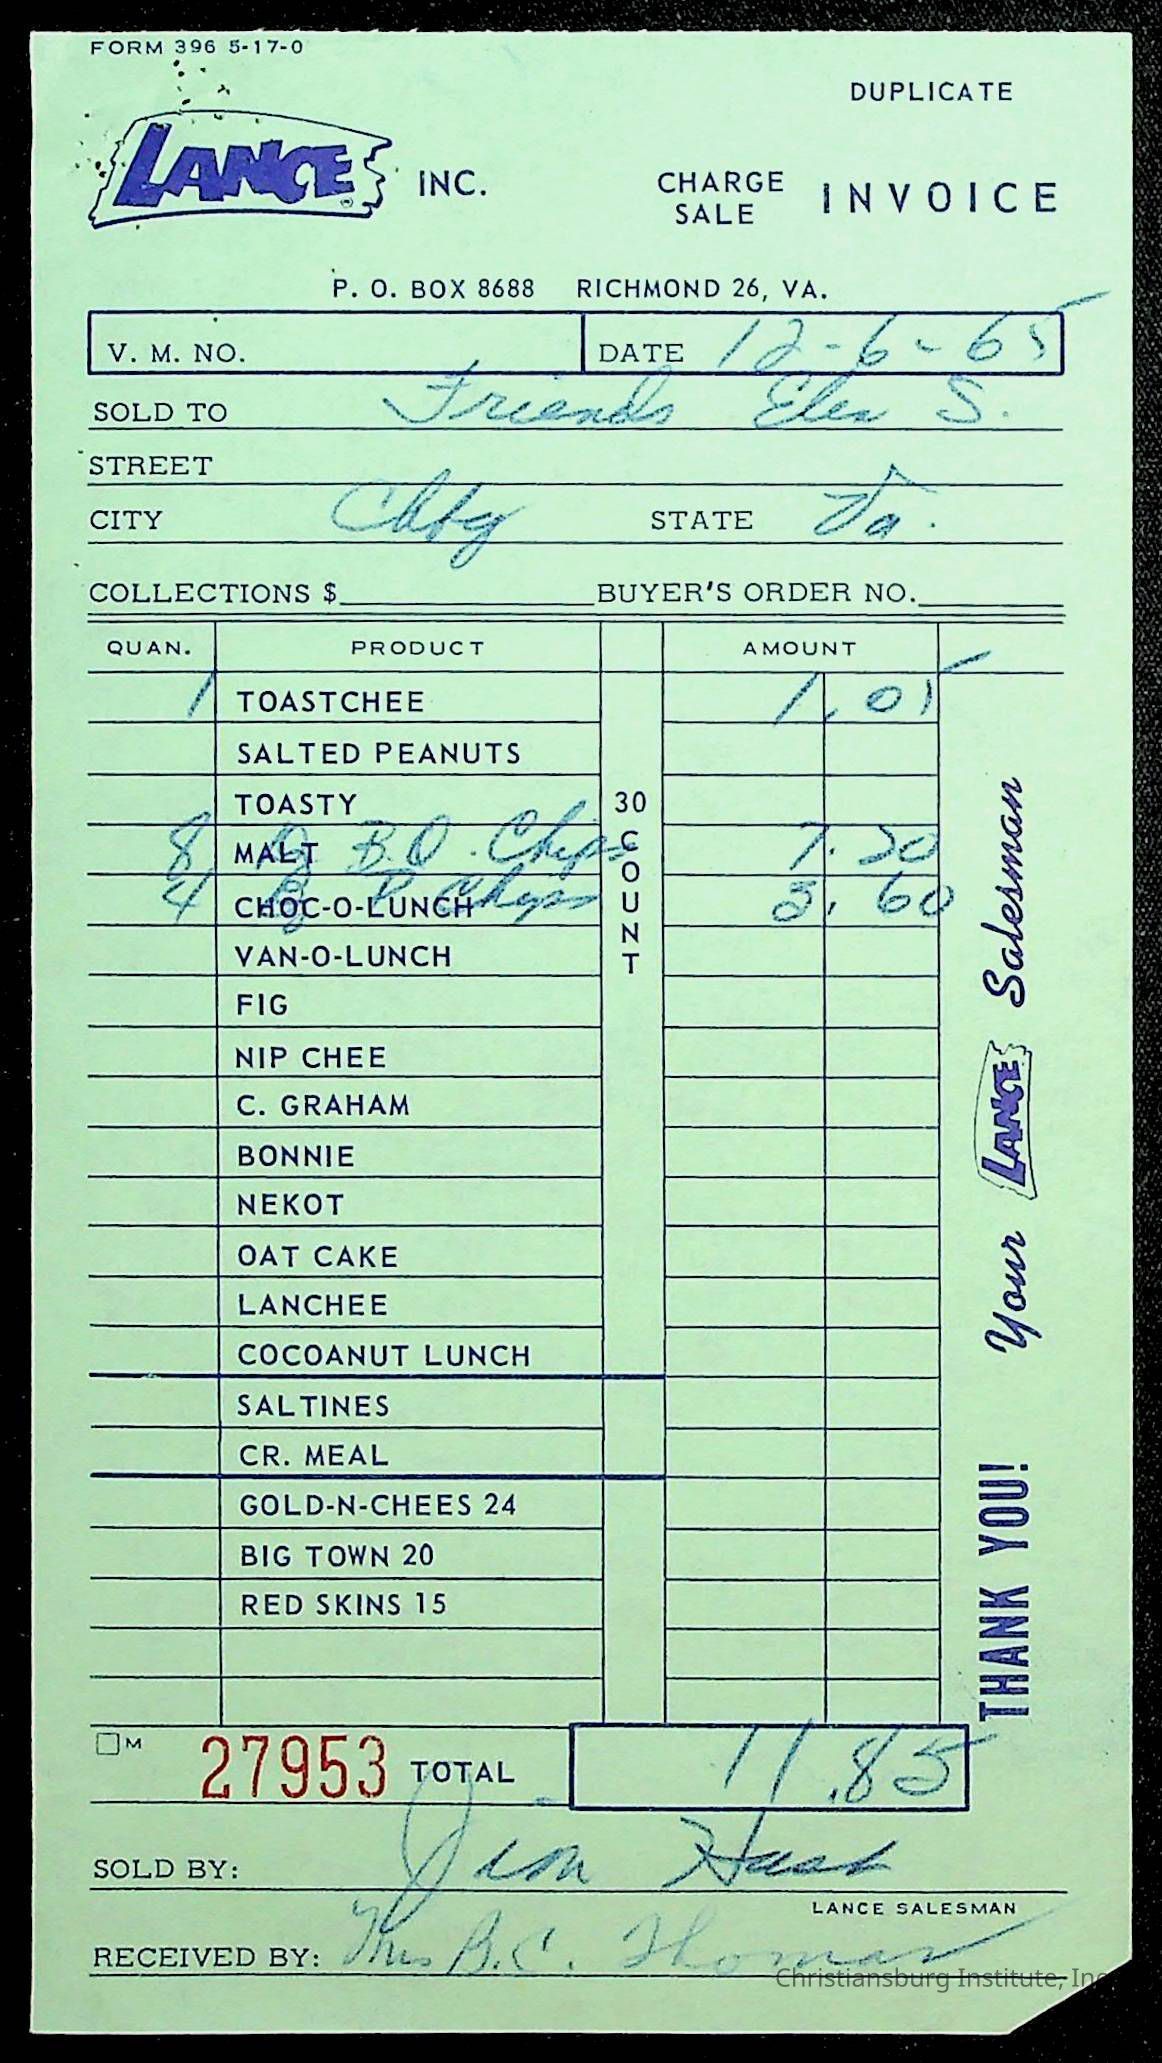 FORM 396 5-17-0
DUPLICATE
LANCE INC. CHARGE SALE INVOICE
P. O. BOX 8688 RICHMOND 26, VA.
V. M. NO. DATE 12-6-65
SOLD TO Friends Elem S.
STREET
CITY Chbg STATE Va.
COLLECTIONS $ BUYER'S ORDER NO.
QUAN. PRODUCT AMOUNT
1 TOASTCHEE 1.05
SALTED PEANUTS
TOASTY
8 MALT B.Q. Chips 7.20
4 CHOC-O-LUNCH P Chips 3.60
VAN-O-LUNCH
FIG
NIP CHEE
C. GRAHAM
BONNIE
NEKOT
OAT CAKE
LANCHEE
COCOANUT LUNCH
30 COUNT
SALTINES
CR. MEAL
GOLD-N-CHEES 24
BIG TOWN 20
RED SKINS 15
THANK YOU! Your LANCE Salesman
M 27953 TOTAL 11.85
SOLD BY: Jim
LANCE SALESMAN
RECEIVED BY: Mrs B.C. Thomas
Christiansburg Institute, Inc